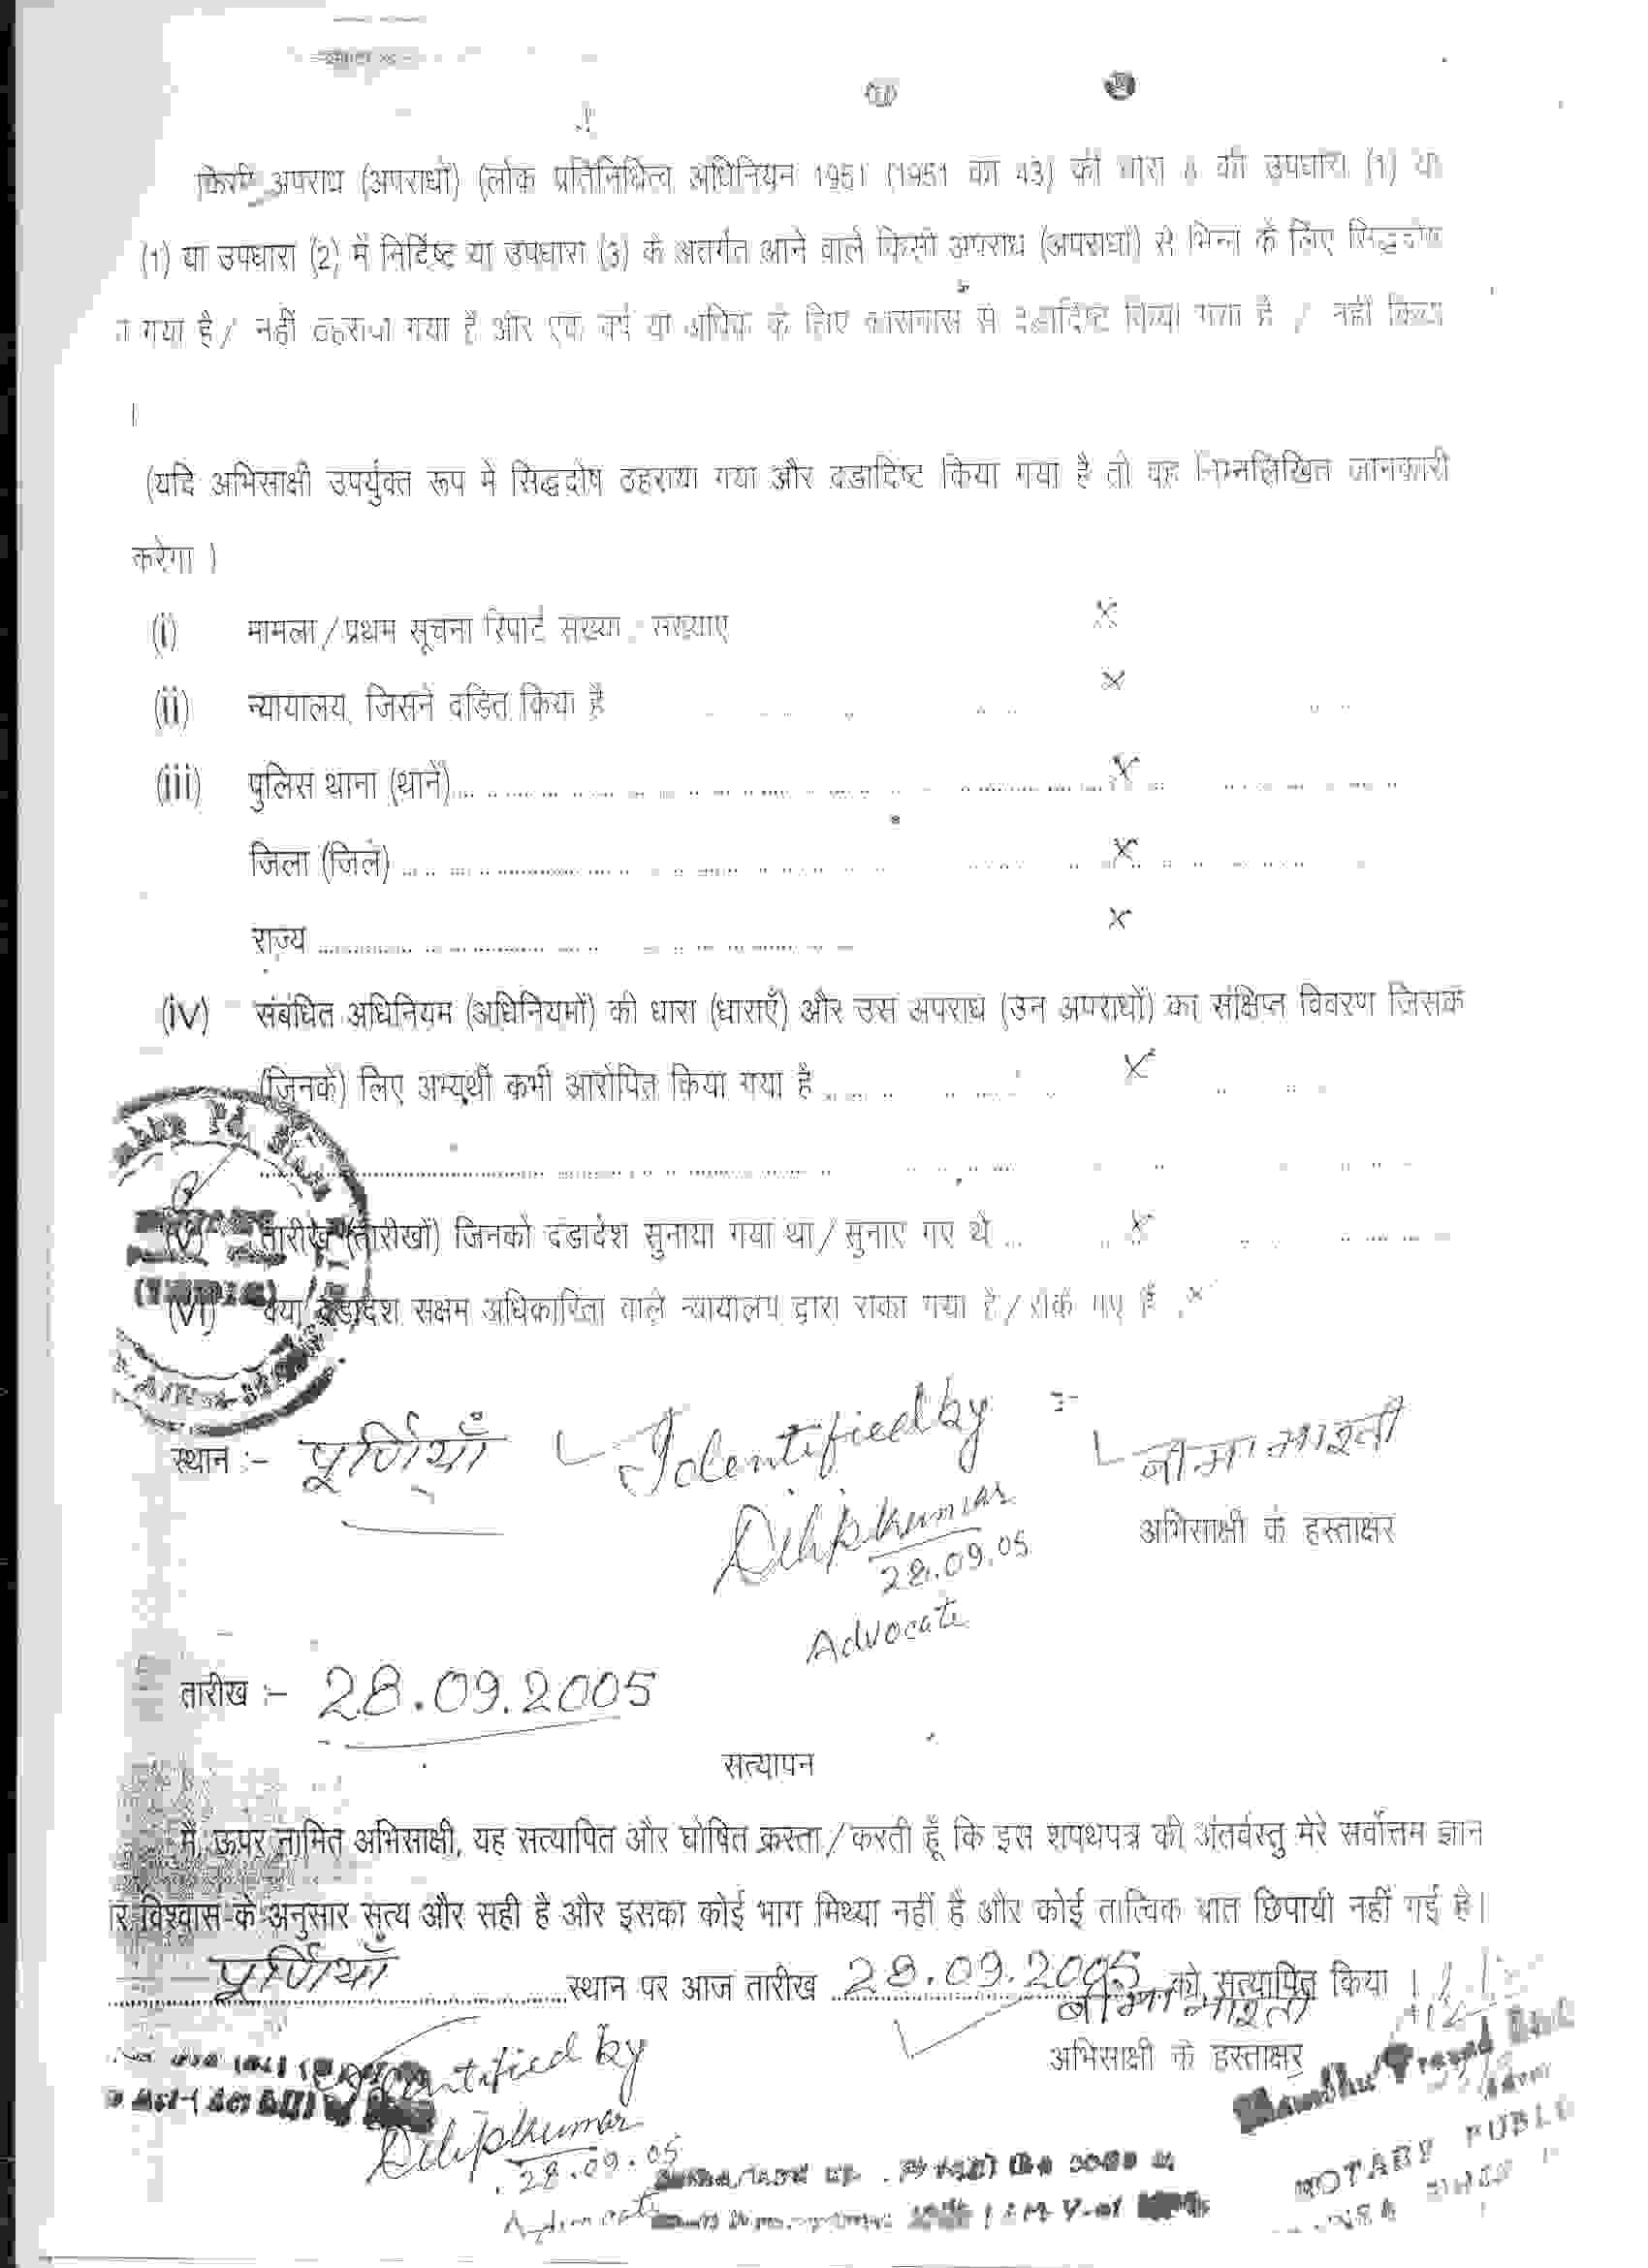 किसी अपराध (अपराधों) (लोक प्रतिनिधित्व अधिनियम 1951 (1951 का 43) की धारा 8 की उपधारा (1) या
(1) या उपधारा (2) में निर्दिष्ट या उपधारा (3) के अंतर्गत आने वाले किसी अपराध (अपराधों) से भिन्न के लिए सिद्धदोष
गया है / नहीं ठहराया गया है और एक वर्ष या अधिक के लिए कारावास से दंडादिष्ट किया गया है / नहीं किया
।
(यदि अभिसाक्षी उपर्युक्त रूप में सिद्धदोष ठहराया गया और दंडादिष्ट किया गया है तो वह निम्नलिखित जानकारी
करेगा )
(i) मामला/प्रथम सूचना रिपोर्ट संख्या / संख्याएं X
(ii) न्यायालय, जिसने दंडित किया है X
(iii) पुलिस थाना (थाने) X
जिला (जिले) X
राज्य X
(iv) संबंधित अधिनियम (अधिनियमों) की धारा (धाराएँ) और उस अपराध (उन अपराधों) का संक्षिप्त विवरण जिसके
(जिनके) लिए अभ्यर्थी कभी आरोपित किया गया है X
(v) तारीख (तारीखों) जिनको दंडादेश सुनाया गया था/सुनाए गए थे X
(vi) क्या दंडादेश सक्षम अधिकारिता वाले न्यायालय द्वारा रोका गया है/रोके गए हैं X
स्थान :- पूर्णियाँ Identified by बीमा भारती
Dilip kumar अभिसाक्षी के हस्ताक्षर
28.09.05
Advocate
तारीख :- 28.09.2005
सत्यापन
मैं, ऊपर नामित अभिसाक्षी, यह सत्यापित और घोषित करता/करती हूँ कि इस शपथपत्र की अंतर्वस्तु मेरे सर्वोत्तम ज्ञान
र विश्वास के अनुसार सत्य और सही है और इसका कोई भाग मिथ्या नहीं है और कोई तात्विक बात छिपायी नहीं गई है।
पूर्णियाँ स्थान पर आज तारीख 28.09.2005 को सत्यापित किया ।
बीमा भारती
अभिसाक्षी के हस्ताक्षर
Identified by
Dilip kumar
28.09.05
Advocate
NOTARY PUBLIC